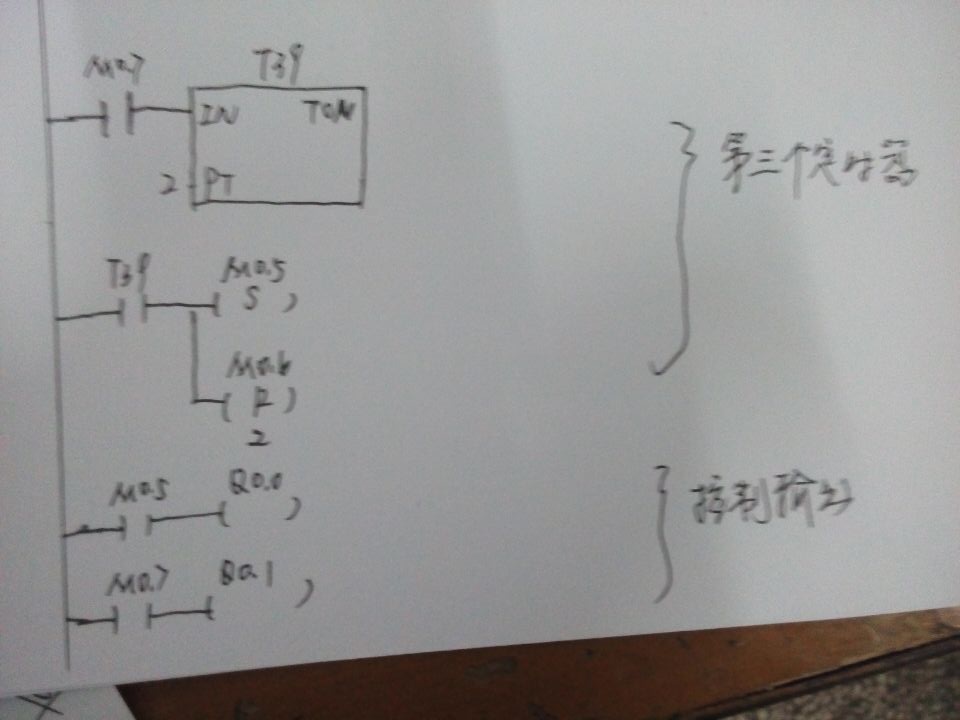 M0.7 T39
IN TON
2 PT
第三个定时器
T39 M0.5
S
M0.6
R
2
M0.5 Q0.0
控制输出
M0.7 Q0.1